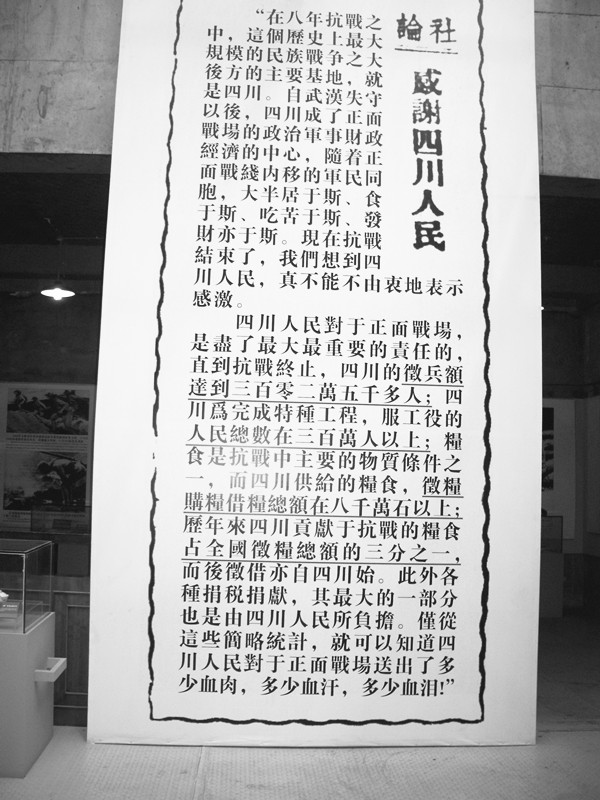 社論
感謝四川人民
“在八年抗戰之
中，這個歷史上最大
規模的民族戰争之大
後方的主要基地，就
是四川。自武漢失守
以後，四川成了正面
戰場的政治軍事財政
經濟的中心，隨着正
面戰綫内移的軍民同
胞，大半居于斯、食
于斯、吃苦于斯、發
財亦于斯。現在抗戰
結束了，我們想到四
川人民，真不能不由衷地表示
感激。
四川人民對于正面戰場，
是盡了最大最重要的責任的，
直到抗戰終止，四川的徵兵額
達到三百零二萬五千多人；四
川爲完成特種工程，服工役的
人民總數在三百萬人以上；糧
食是抗戰中主要的物質條件之
一，而四川供給的糧食，徵糧
購糧借糧總額在八千萬石以上；
歷年來四川貢獻于抗戰的糧食
占全國徵糧總額的三分之一，
而後徵借亦自四川始。此外各
種捐税捐獻，其最大的一部分
也是由四川人民所負擔。僅從
這些簡略統計，就可以知道四
川人民對于正面戰場送出了多
少血肉，多少血汗，多少血泪!”